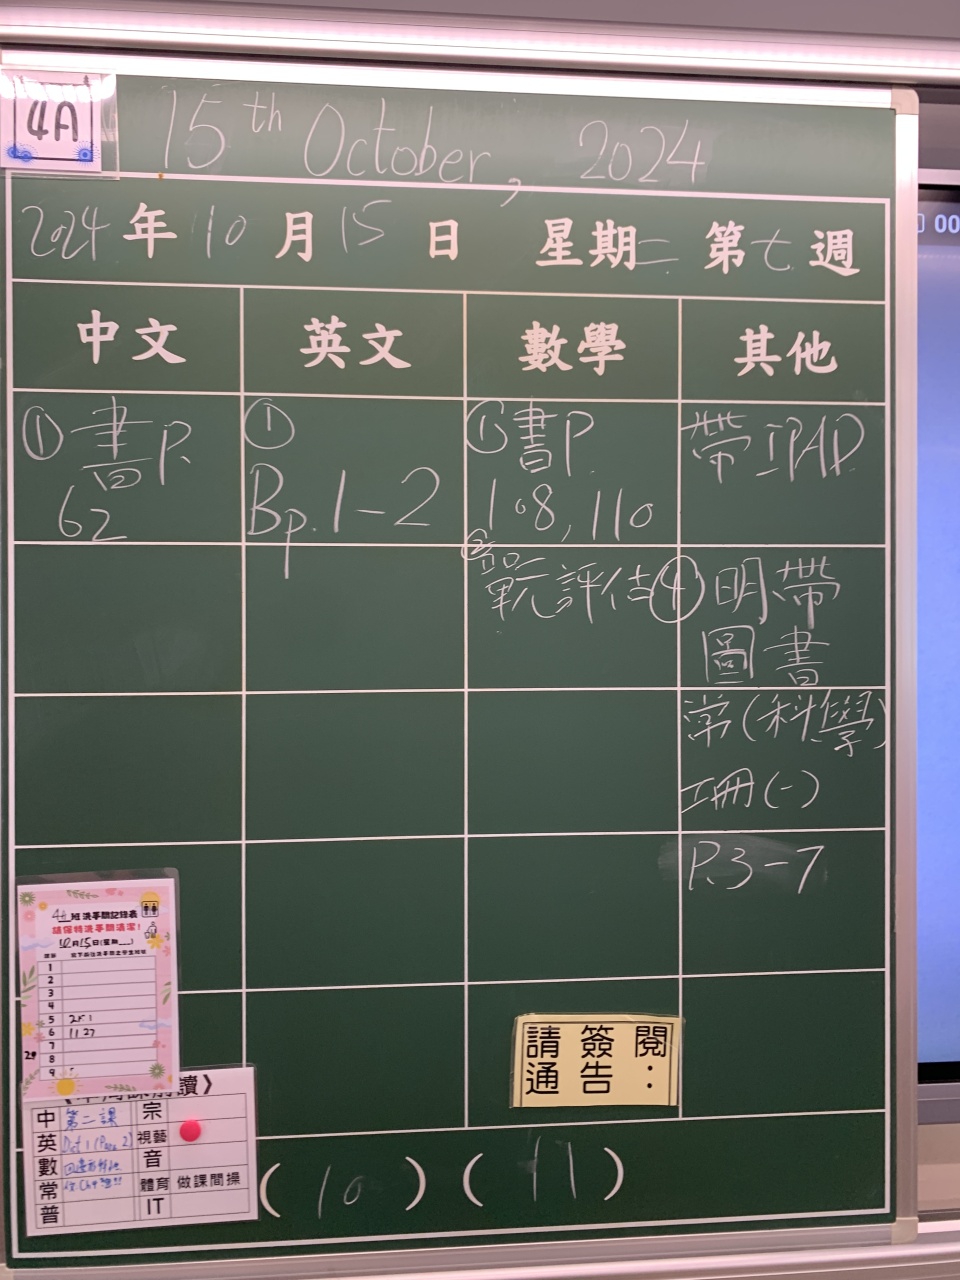 4A
15th October, 2024
2024年10月15日 星期二 第七週
中文 英文 數學 其他
①書P.62
①Bp.1-2
①書P.108,110
②單元評估
帶IPAD
④明帶圖書
常(科學)
工冊(一)
P.3-7
4A班洗手間記錄表
請保持洗手間清潔！
10月15日(星期__)
1
2
3
4
5
6 11 27
7
8
9
請簽閱
通告：
讀》
中 第二課 宗
英 Dict 1 視藝
數 音
常 體育 做課間操
普 IT
(10)(11)
00